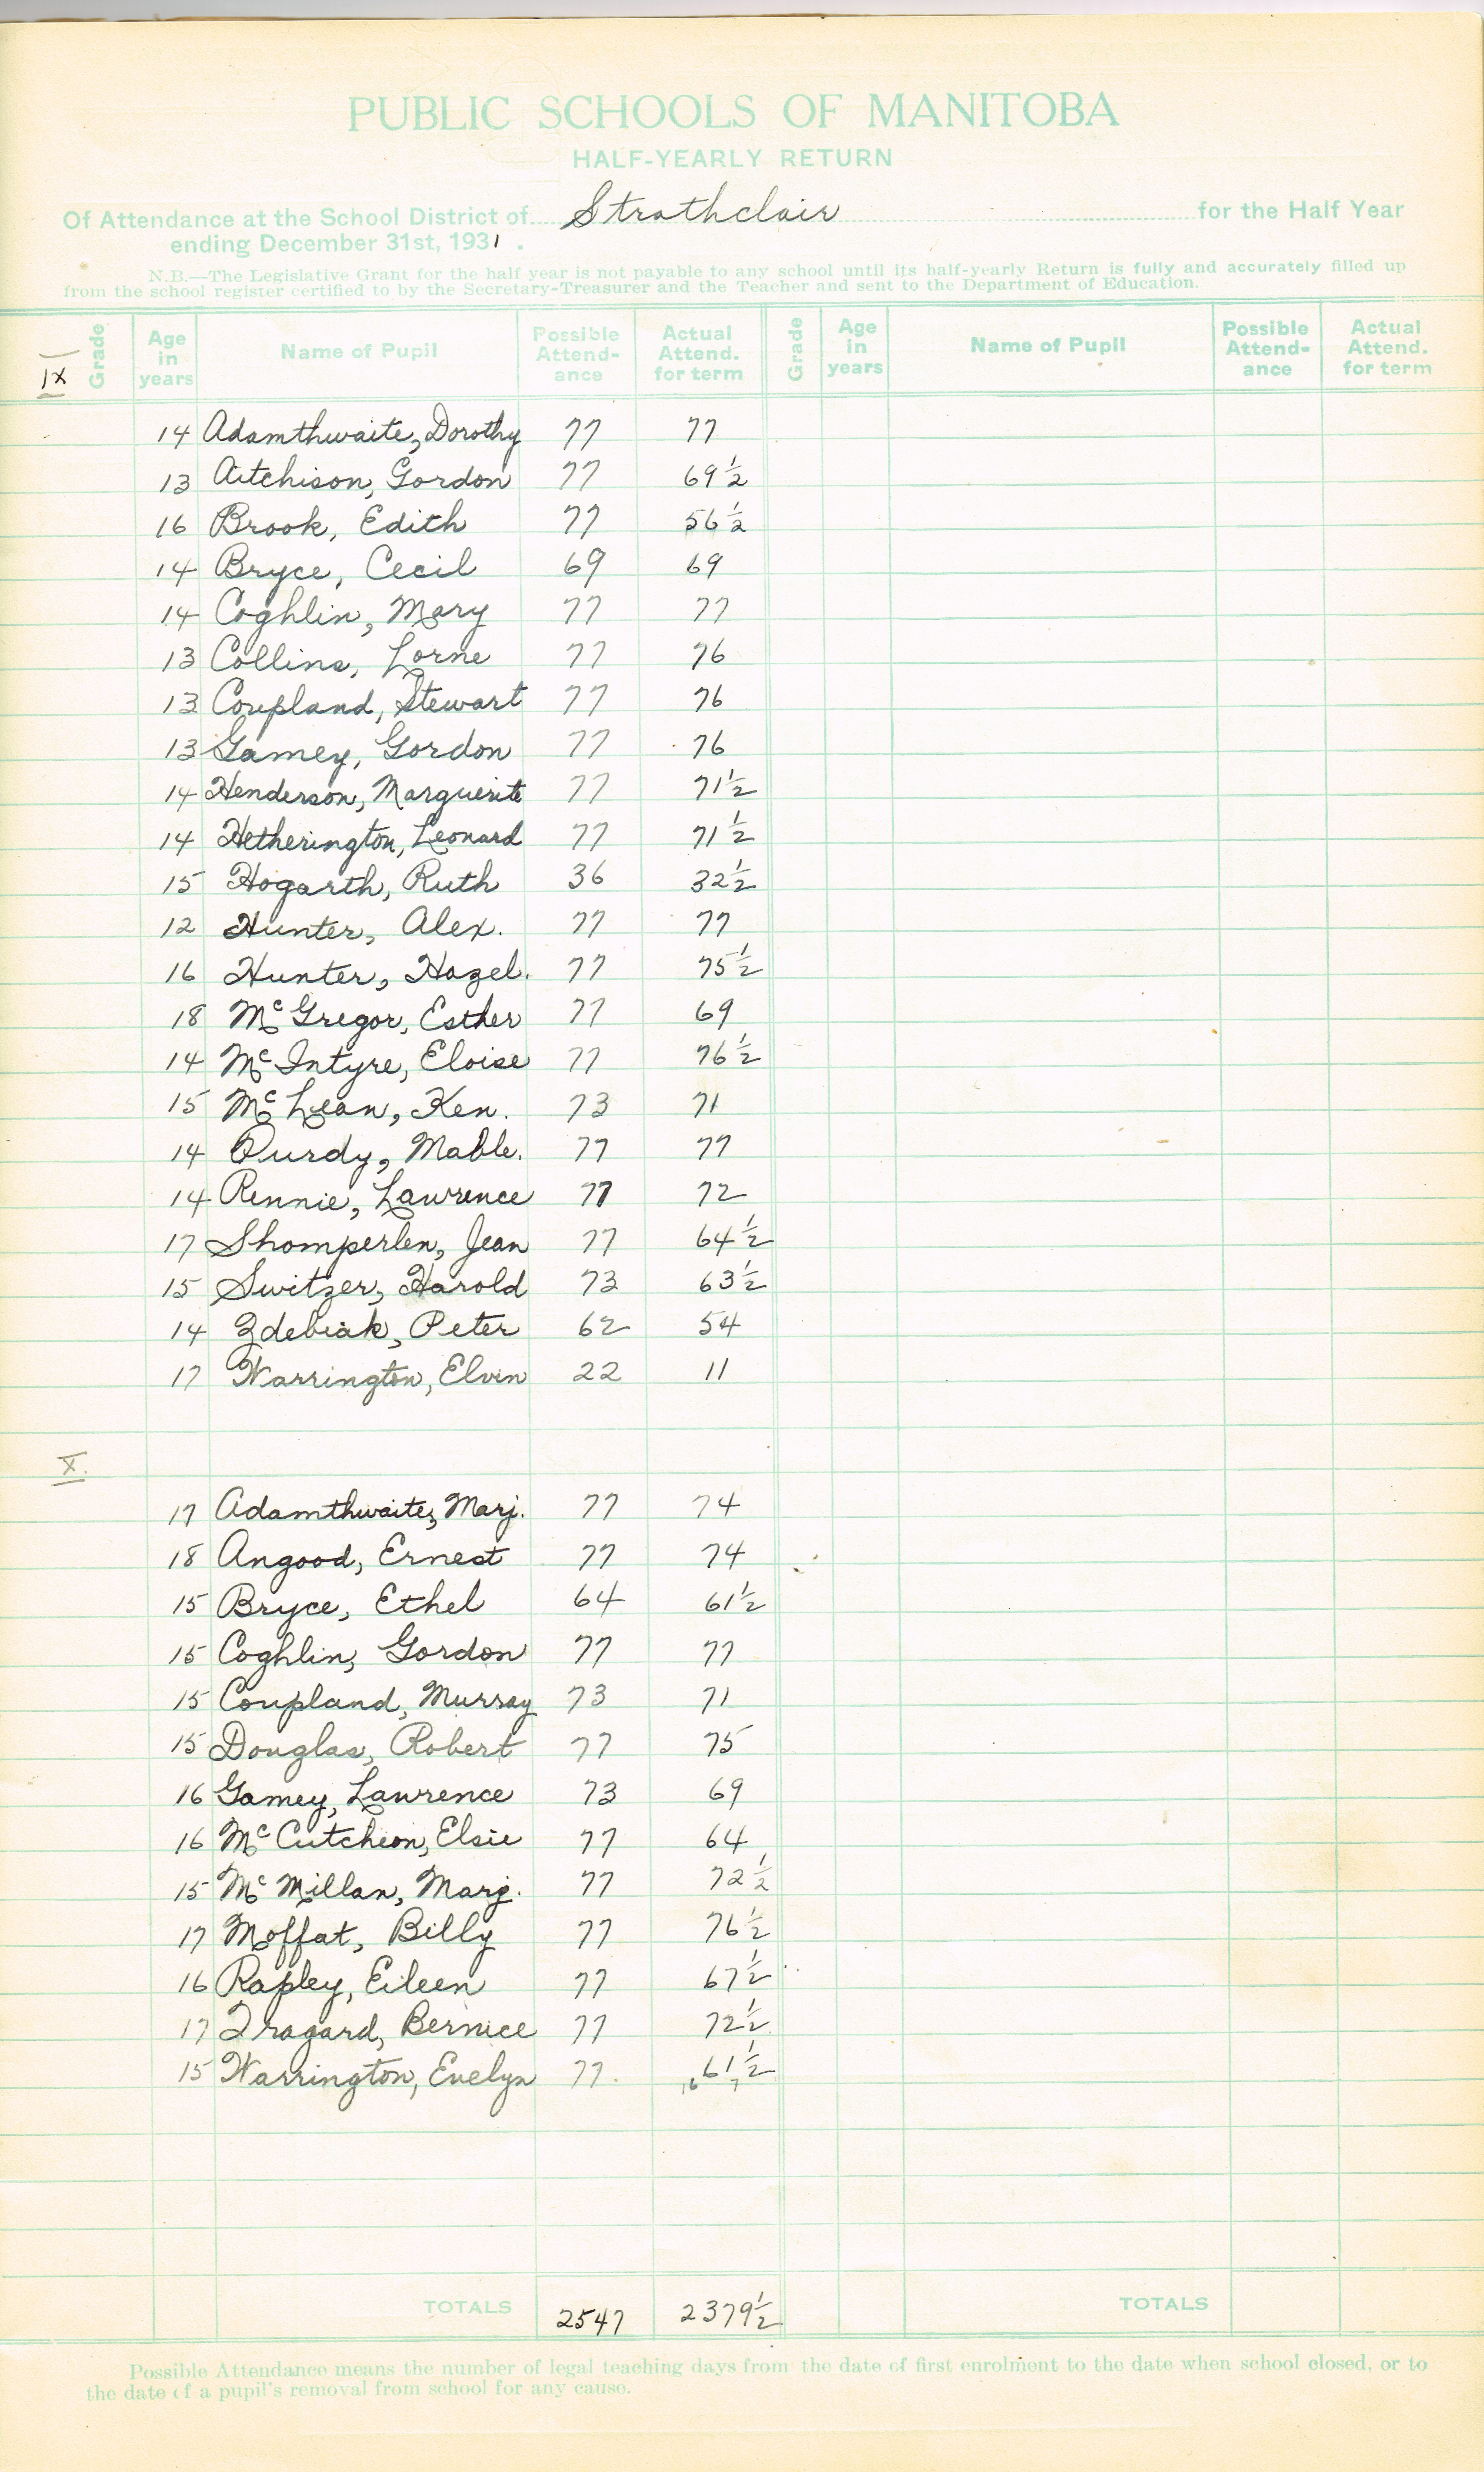 PUBLIC SCHOOLS OF MANITOBA
HALF-YEARLY RETURN
Of Attendance at the School District of Strathclair for the Half Year
ending December 31st, 1931.
N.B.—The Legislative Grant for the half year is not payable to any school until its half-yearly Return is fully and accurately filled up
from the school register certified to by the Secretary-Treasurer and the Teacher and sent to the Department of Education.
Grade Age in years Name of Pupil Possible Attend-ance Actual Attend. for term Grade Age in years Name of Pupil Possible Attend-ance Actual Attend. for term
IX
14 Adamthwaite, Dorothy 77 77
13 Aitchison, Gordon 77 69 1/2
16 Brook, Edith 77 56 1/2
14 Bryce, Cecil 69 69
14 Coghlin, Mary 77 77
13 Collins, Lorne 77 76
13 Coupland, Stewart 77 76
13 Gamey, Gordon 77 76
14 Henderson, Marguerite 77 71 1/2
14 Hetherington, Leonard 77 71 1/2
15 Hogarth, Ruth 36 32 1/2
12 Hunter, Alex. 77 77
16 Hunter, Hazel. 77 75 1/2
18 McGregor, Esther 77 69
14 McIntyre, Eloise 77 76 1/2
15 McLean, Ken. 73 71
14 Purdy, Mable. 77 77
14 Rennie, Lawrence 77 72
17 Shomperlen, Jean 77 64 1/2
15 Switzer, Harold 73 63 1/2
14 Zdebiak, Peter 62 54
17 Warrington, Elvin 22 11
X.
17 Adamthwaite, Marj. 77 74
18 Angood, Ernest 77 74
15 Bryce, Ethel 64 61 1/2
15 Coghlin, Gordon 77 77
15 Coupland, Murray 73 71
15 Douglas, Robert 77 75
16 Gamey, Lawrence 73 69
16 McCutcheon, Elsie 77 64
15 McMillan, Marj. 77 72 1/2
17 Moffat, Billy 77 76 1/2
16 Rapley, Eileen 77 67 1/2
17 Tragard, Bernice 77 72 1/2
15 Warrington, Evelyn 77. 61 1/2
16 7
TOTALS 2547 2379 1/2 TOTALS
Possible Attendance means the number of legal teaching days from the date of first enrolment to the date when school closed, or to
the date of a pupil's removal from school for any cause.